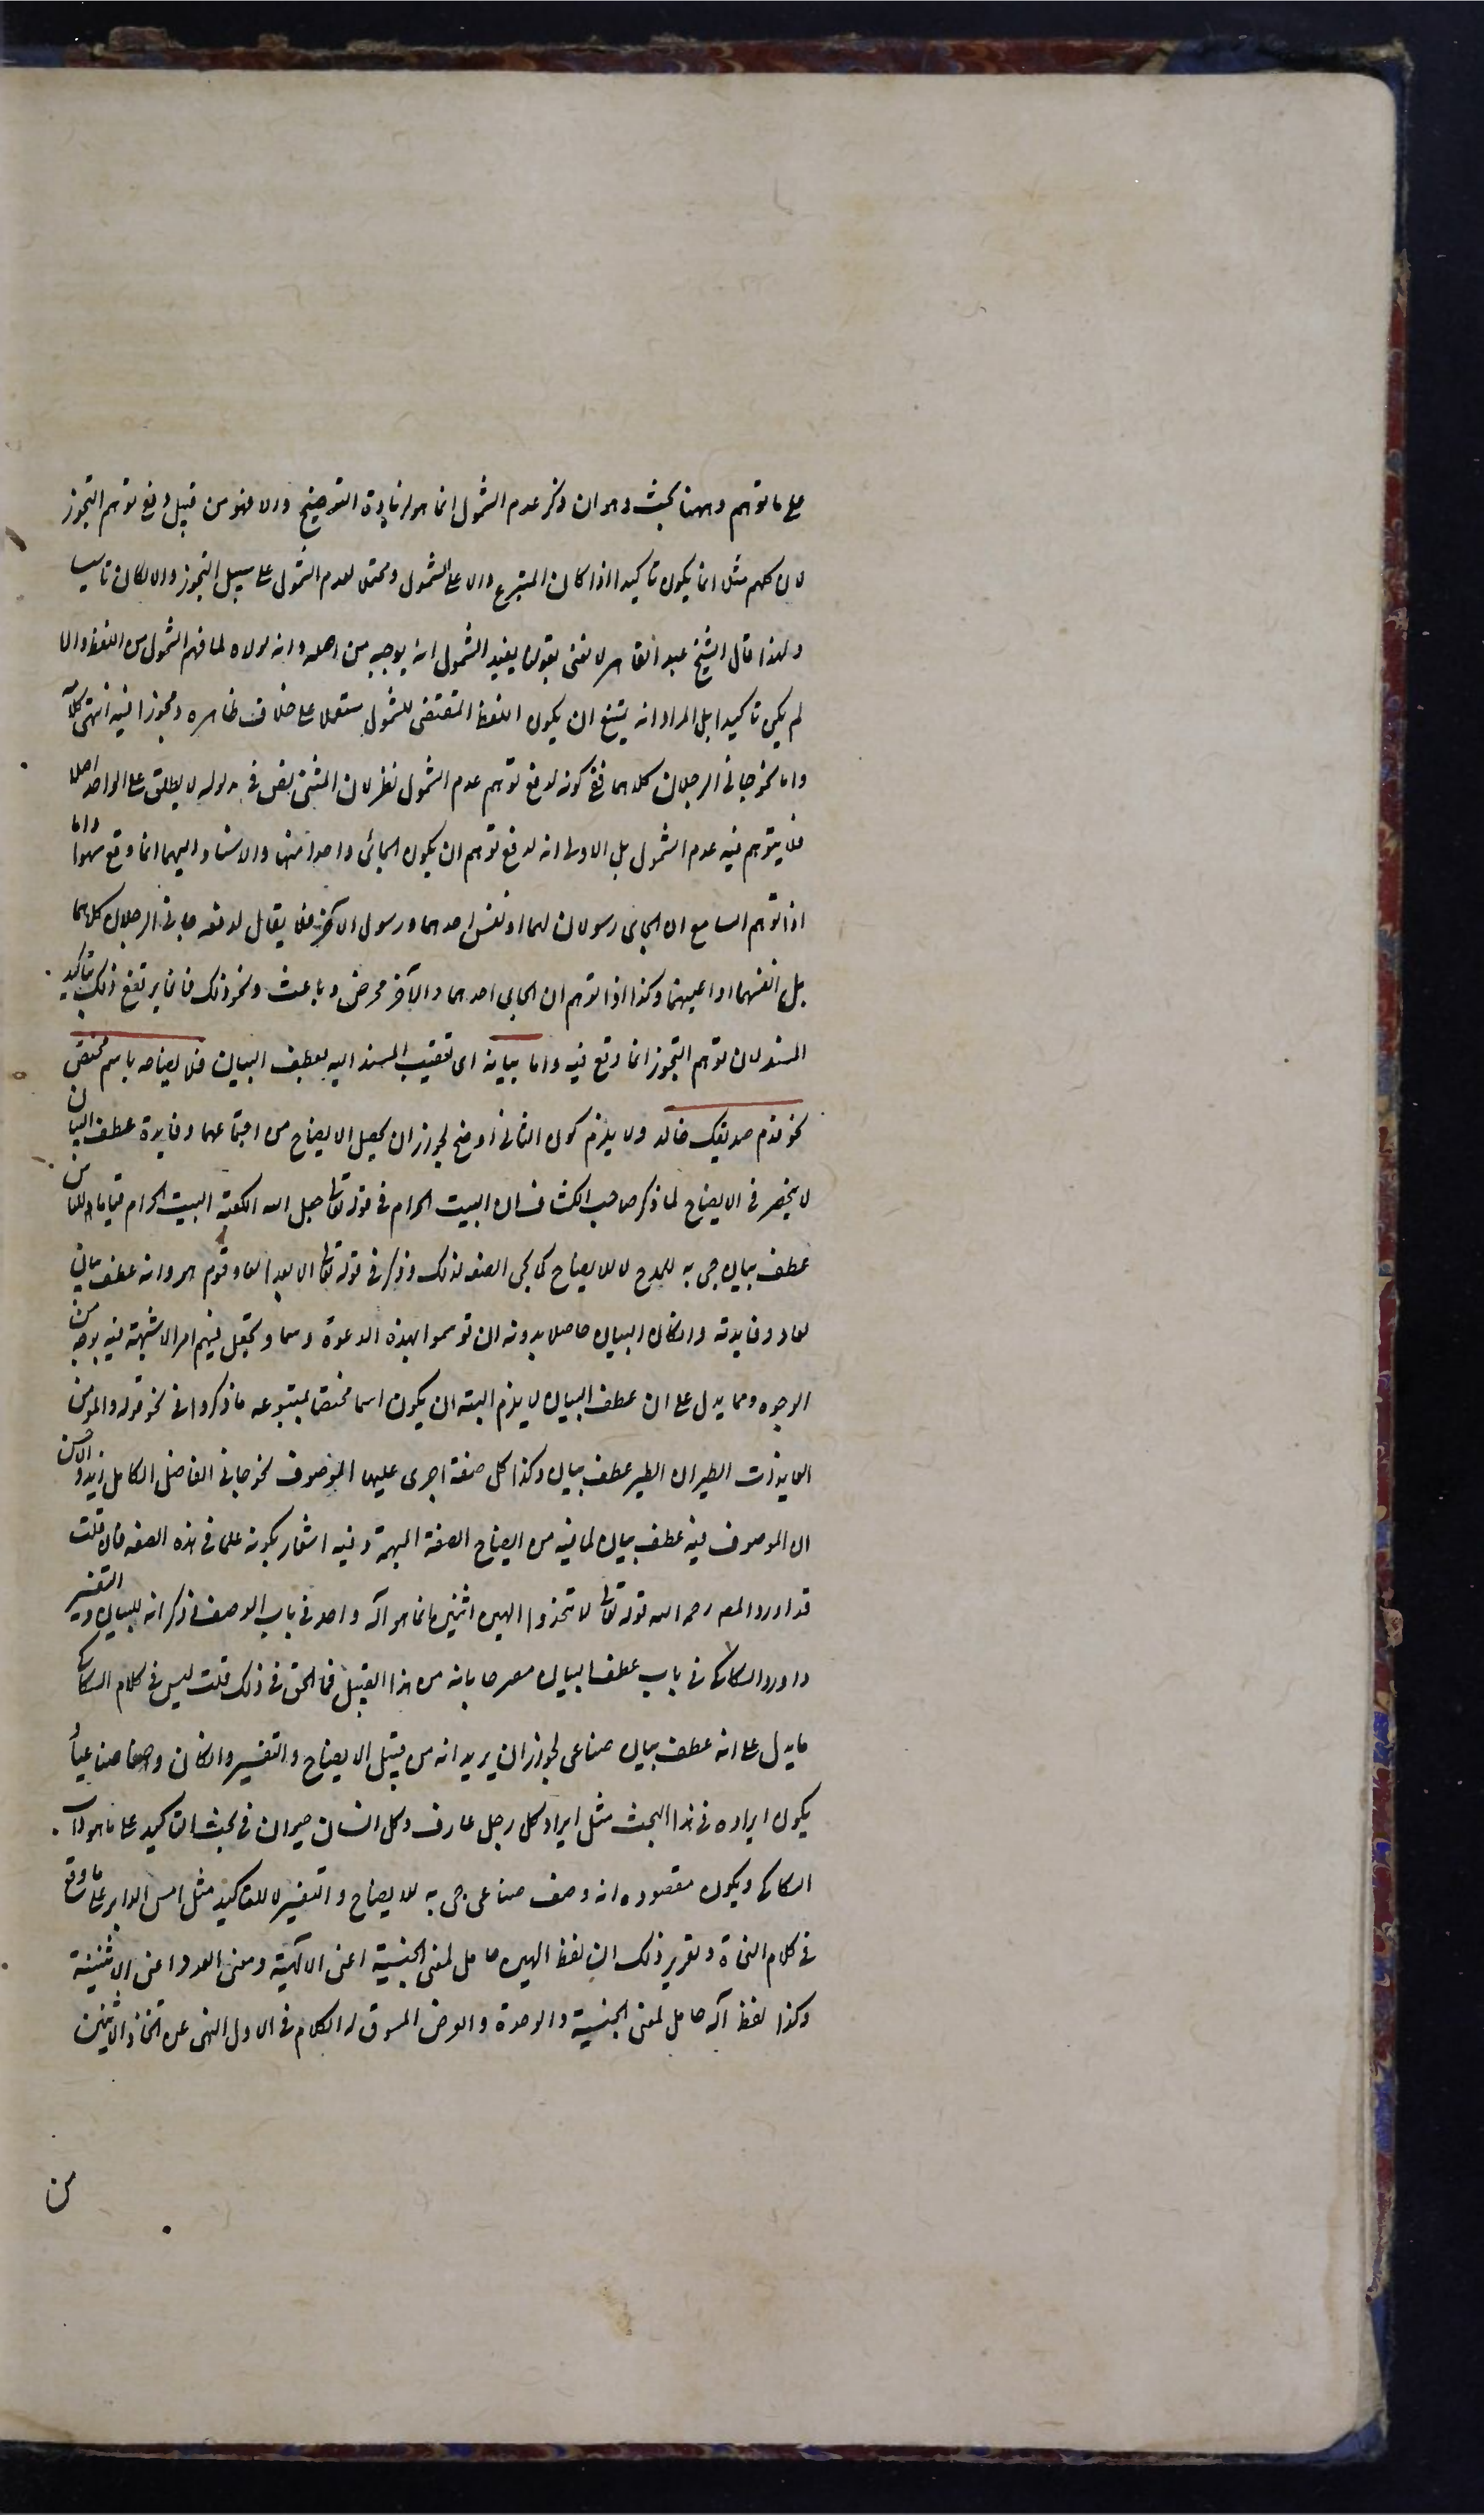 على ما توهم وههنا بحث وهو ان ذكر عدم الشمول انما هو لزيادة التوضيح والا فهو من قبيل دفع توهم التجوز
لان كلهم مثلا انما يكون تاكيدا اذا كان المتبوع دالا على الشمول ومحتملا لعدم الشمول على سبيل التجوز والا لكان تاسيسا
ولهذا قال الشيخ عبد القاهر لا نعنى بقولنا يفيد الشمول انه يوجبه من اصله وانه لولاه لما فهم الشمول من اللفظ والا
لم يكن تاكيدا بل المراد انه يمنع ان يكون اللفظ المقتضى للشمول مستعملا على خلاف ظاهره ومتجوزا فيه انتهى كلامه
واما نحو جاءنى الرجلان كلاهما ففى كونه لدفع توهم عدم الشمول نظر لان المثنى نص فى مدلوله لا يطلق على الواحد اصلا
فلا يتوهم فيه عدم الشمول بل الاولى انه لدفع توهم ان يكون الجائى واحدا منهما والاسناد اليهما انما وقع سهوا واما
اذا توهم السامع ان الجائى رسولان لهما او نفس احدهما ورسول الآخر فلا يقال لدفعه جاءنى الرجلان كلاهما
بل انفسهما او اعينهما وكذا اذا توهم ان الجائى احدهما والآخر محرض وباعث ونحو ذلك فانما يرتفع ذلك بتاكيد
المسند لان توهم التجوز انما وقع فيه واما بيانه اى تعقيب المسند اليه بعطف البيان فلايضاحه باسم مختص
نحو قدم صديقك خالد ولا يلزم كون الثانى اوضح لجواز ان يحصل الايضاح من اجتماعهما وفايدة عطف البيان
لا ينحصر فى الايضاح لما ذكر صاحب الكشاف ان البيت الحرام فى قوله تعالى جعل الله الكعبة البيت الحرام قياما للناس
عطف بيان جئ به للمدح لا للايضاح كما يجئ الصفة لذلك وذكر فى قوله تعالى الا بعدا لعاد قوم هود انه عطف بيان
لعاد وفايدته وان كان البيان حاصلا بدونه ان توسموا بهذه الدعوة وسما وتجعل فيهم امرا لا شبهة فيه بوجه من
الوجوه ومما يدل على ان عطف البيان لا يلزم البتة ان يكون اسما مختصا بمتبوعه ما ذكروا فى نحو قوله والمؤمن
العايذات الطير ان الطير عطف بيان وكذا كل صفة اجرى عليها الموصوف نحو جاءنى الفاضل الكامل زيد والاحسن
ان الموصوف فيه عطف بيان لما فيه من ايضاح الصفة المبهمة وفيه اشعار بكونه علما فى هذه الصفة فان قلت
قد اورد المص رحمه الله قوله تعالى لا تتخذوا الهين اثنين انما هو اله واحد فى باب الوصف وذكر انه للبيان والتفسير
واورد السكاكى فى باب عطف البيان مصرحا بانه من هذا القبيل فما الحق فى ذلك قلت ليس فى كلام السكاكى
ما يدل على انه عطف بيان صناعى لجواز ان يريد انه من قبيل الايضاح والتفسير وان كان وصفا صناعيا
يكون ايراده فى هذا البحث مثل ايراد كل رجل عارف وكل انسان حيوان فى بحث التاكيد على ما هو داب
السكاكى ويكون مقصوده انه وصف صناعى جئ به للايضاح والتفسير لا للتاكيد مثل امس الدابر على ما وقع
فى كلام النحاة وتقرير ذلك ان لفظ الهين حامل لمعنى الجنسية اعنى الالهية ومعنى العدد اعنى الاثنينية
وكذا لفظ اله حامل لمعنى الجنسية والوحدة والغرض المسوق له الكلام فى الاول النهى عن اتخاذ الاثنين
من